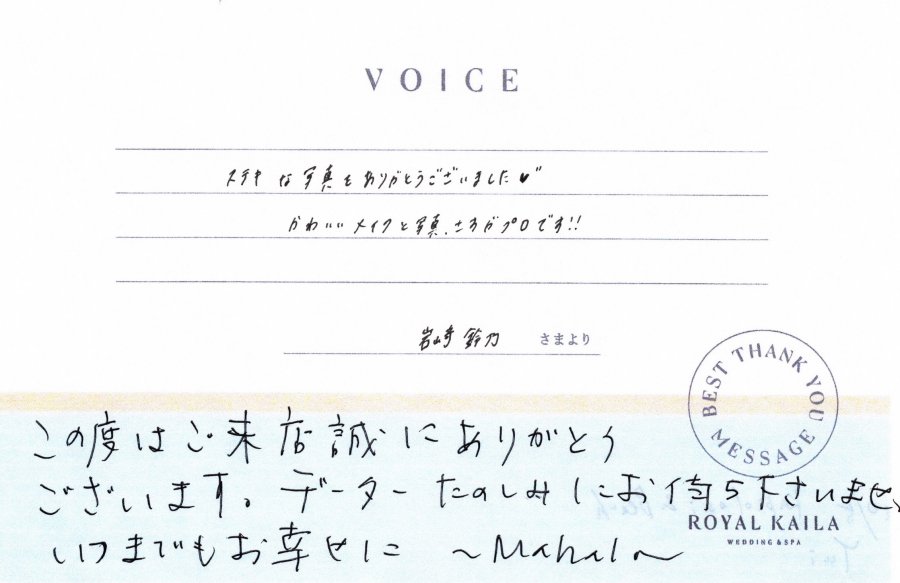 VOICE
ステキな写真をありがとうございました♥"
かわいいメイクと写真、さすがプロです!!
岩崎 鈴乃 さまより
BEST THANK YOU MESSAGE
この度はご来店誠にありがとう
ございます。データーたのしみにお待ち下さいませ、
ROYAL KAILA
WEDDING & SPA
いつまでもお幸せに ～Mahalo～